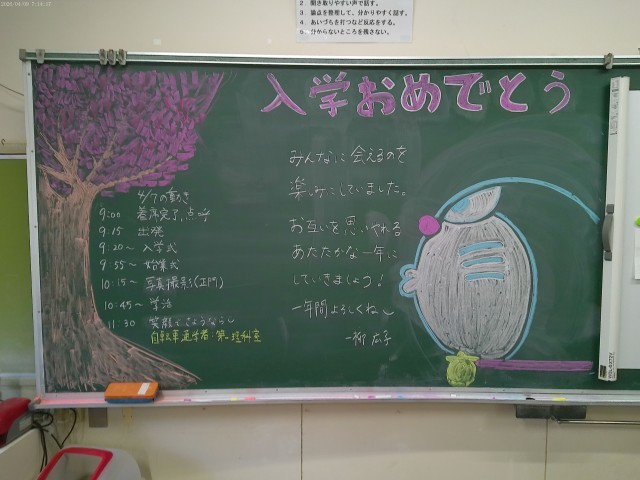 2. 聞き取りやすい声で話す。
3. 論点を整理して、分かりやすく話す。
4. あいづちを打つなど反応をする。
5. 分からないところを残さない。
入学おめでとう
4/7の動き
9:00 着席完了,点呼
9:15 出発
9:20〜入学式
9:55〜始業式
10:15〜写真撮影(正門)
10:45〜学活
11:30 笑顔でさようなら〜
自転車通学者 第一理科室
みんなに会えるのを
楽しみにしていました。
お互いを思いやれる
あたたかな一年に
していきましょう!
一年間よろしくね〜
一柳 広子